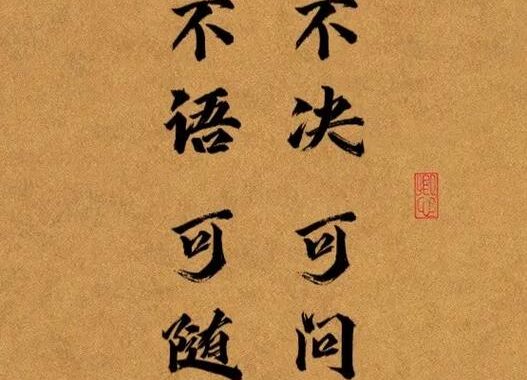 不决可问
不语可随